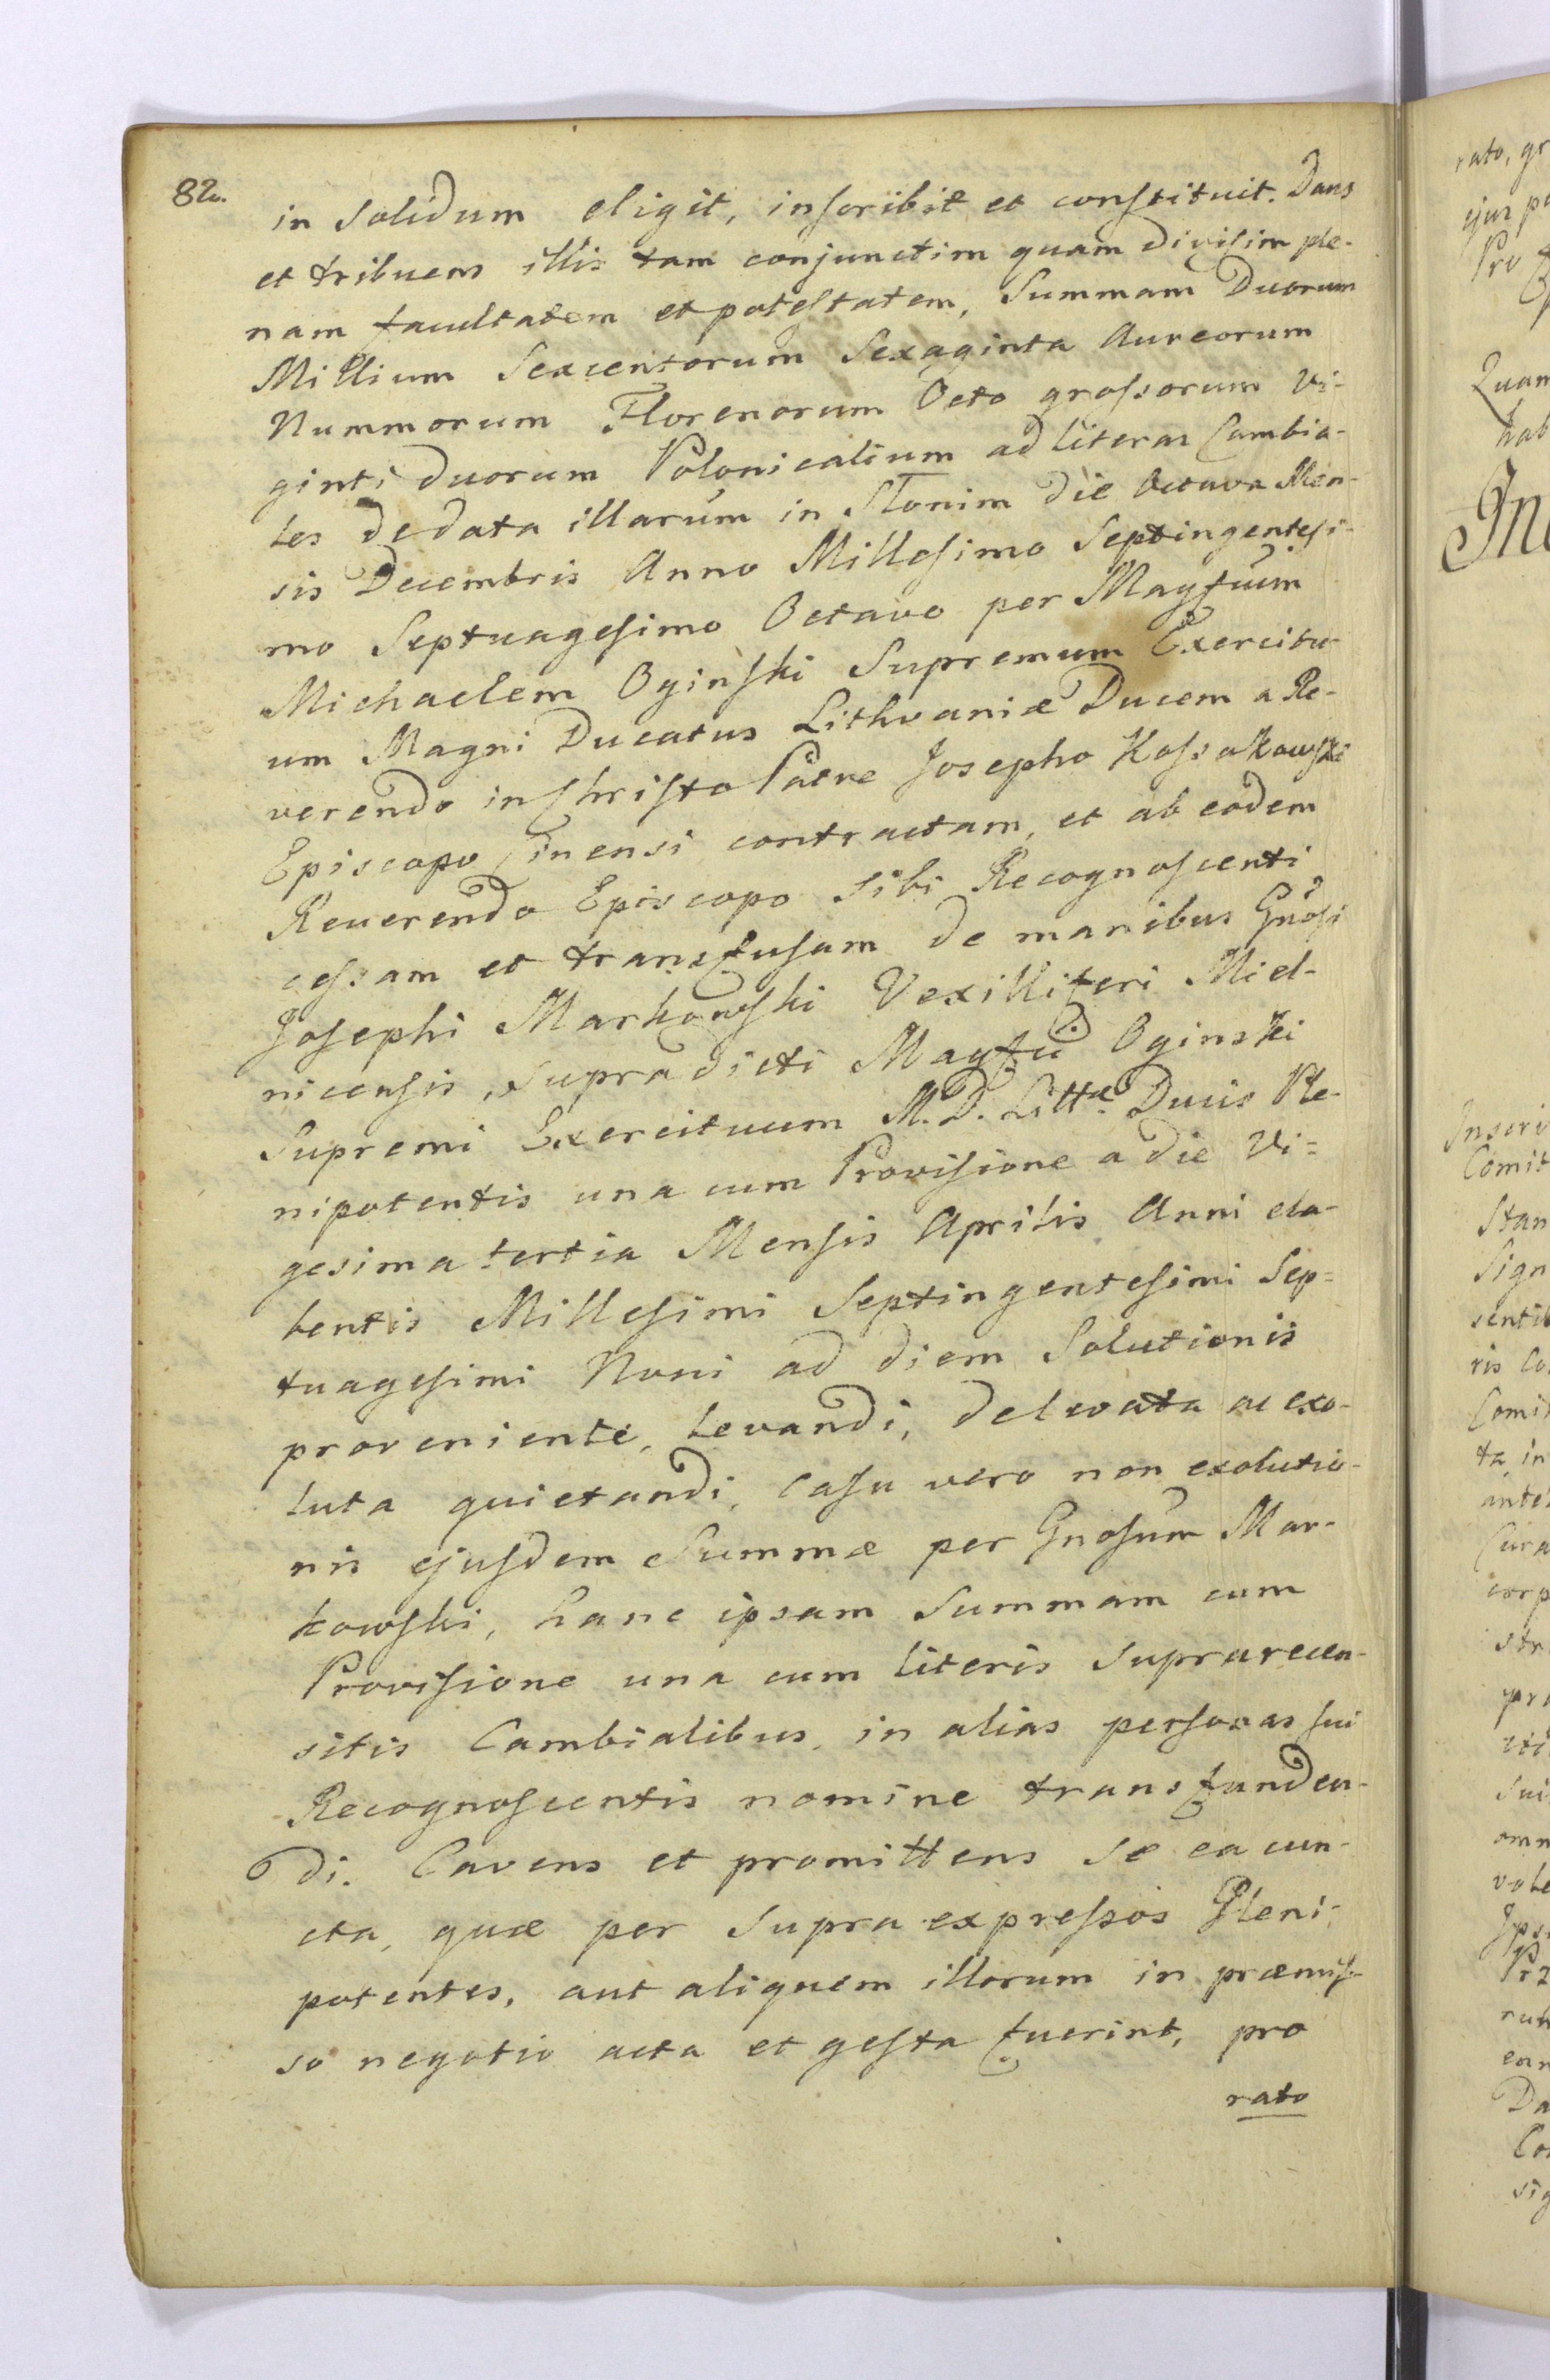 82.
in solidum eligit, inscribit et constituit. Dans
et tribuens illis tam conjunctim quam divisim ple-
nam facultatem et potestatem, Summam Duorum
Millium Sexcentorum Sexaginta Aureorum
Nummorum Florenorum Octo grossorum vi-
ginti duorum Polonicalium ad literas Cambia-
les de data illarum in Słonim die Octava Men-
sis Decembris Anno Millesimo Septingentesi-
mo Septuagesimo Octavo per Magfcum
Michaelem Oginski Supremum Exercitu-
um Magni Ducatus Lithvaniæ Ducem a Re-
verendo in Christo Patre Josepho Kossakowski
Episcopo Cinensi contractam, et ab eodem
Reverendo Episcopo sibi Recognoscenti
cessam et transfusam de manibus Gnosi
Josephi Markowski Vexilliferi Miel-
nicensis, supradicti Magfci Oginski
Supremi Exercituum M. D. Littæ Ducis Ple-
nipotentis una cum Provisione a die Vi=
gesima tertia Mensis Aprilis Anni ela-
bentis Millesimi Septingentesimi Sep=
tuagesimi Noni ad diem Solutionis
proveniente, levandi, de levata ac exo-
luta quietandi, casu vero non exolutio-
nis ejusdem Summæ per Gnosum Mar-
kowski, hanc ipsam Summam cum
Provisione una cum literis suprarecen-
sitis Cambialibus, in alias personas sui
Recognoscentis nomine transfunden-
di. Cavens et promittens se ea cun-
cta, quæ per supra expressos Pleni-
potentes, aut aliquem illorum in præmis-
so negotio acta et gesta fuerint, pro
rato
rato, gr
ejus
Pro
Quam
hab
Inscri
Comit
Stan
Sign
sentib
ris Co
Comi
ta in
antel
Cura
corp
str
pra
sui
omn
vale
Ipsi
Prz
ruh
ear
Da
Co
sig